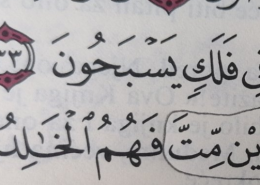 فِي فَلَكٍ يَسْبَحُونَ ٣٣
يْن مِّتَّ فَهُمُ ٱلْخَٰلِدُ